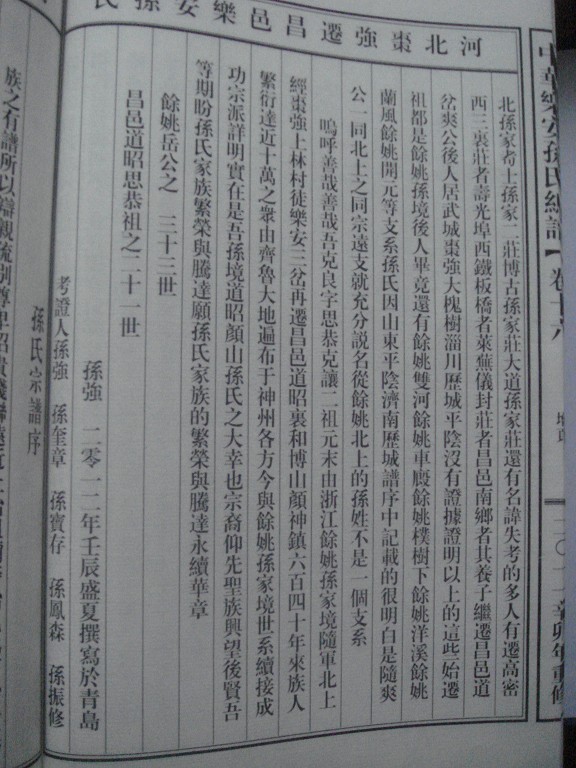 中華樂安孫氏總譜
卷十六
二〇一一辛卯年重修
河北棗強遷昌邑樂安孫氏
北孫家者上孫家二莊博古孫家莊大道孫家莊還有名諱失考的多人有遷高密
西三裏莊者壽光埠西鐵板橋者萊蕪儀封莊者昌邑南鄉者其養子繼遷昌邑道
岔爽公後人居武城棗強大槐樹淄川歷城平陰沒有證據證明以上的這些始遷
祖都是餘姚孫境後人畢竟還有餘姚雙河餘姚車廄餘姚樸樹下餘姚洋溪餘姚
蘭風餘姚開元等支系孫氏因山東平陰濟南歷城譜序中記載的很明白是隨爽
公一同北上之同宗遠支就充分説名從餘姚北上的孫姓不是一個支系
嗚呼善哉善哉吾克良字思恭克讓二祖元末由浙江餘姚孫家境隨軍北上
經棗強上林村徒樂安三岔再遷昌邑道昭裏和博山顏神鎮六百四十年來族人
繁衍達近十萬之衆由齊魯大地遍布于神州各方今與餘姚孫家境世系續接成
功宗派詳明實在是吾孫境道昭顏山孫氏之大幸也宗裔仰先聖族興望後賢吾
等期盼孫氏家族繁榮與騰達願孫氏家族的繁榮與騰達永續華章
餘姚岳公之 三十三世
昌邑道昭思恭祖之二十一世
孫強 二零一二年壬辰盛夏撰寫於青島
考證人孫強 孫奎章 孫寶存 孫鳳森 孫振修
孫氏宗譜序
族之有譜所以辯親疏別尊卑昭